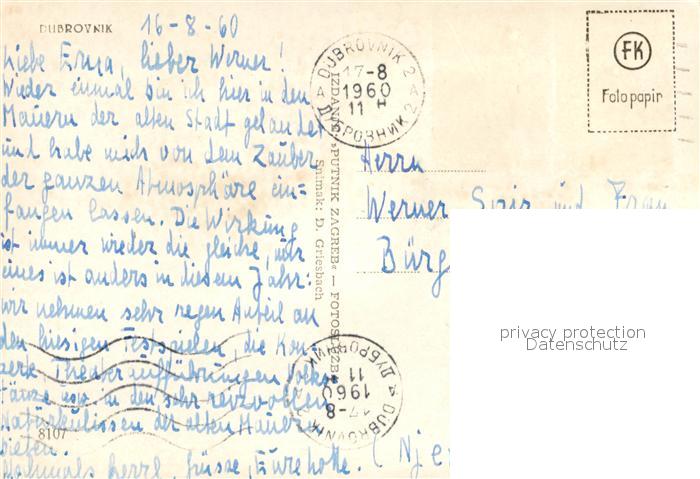 DUBROVNIK
16-8-60
Liebe Erna, lieber Werner!
Wieder einmal bin ich hier in den
Mauern der alten Stadt gelandet
und habe mich von dem Zauber
der ganzen Atmosphäre ein-
fangen lassen. Die Wirkung
ist immer wieder die gleiche, nur
eines ist anders in diesem Jahr:
wir nehmen sehr regen Anteil an
den hiesigen Festspielen, die Kon-
zerte Theateraufführungen Volks-
tänze usw in den sehr reizvollen
Naturkulissen der alten Mauern
bieten.
Nochmals herzl. Grüsse, Eure
8107
IZDANJE »PUTNIK ZAGREB« — 
Snimak: D. Griesbach
DUBROVNIK 2
17-8
1960
11 H
ДУБРОВНИК 2
FK
Foto papir
Herrn
Werner und Frau
Bürg
privacy protection
Datenschutz
DUBROVNIK
17-8
1960
11
ДУБРОВНИК